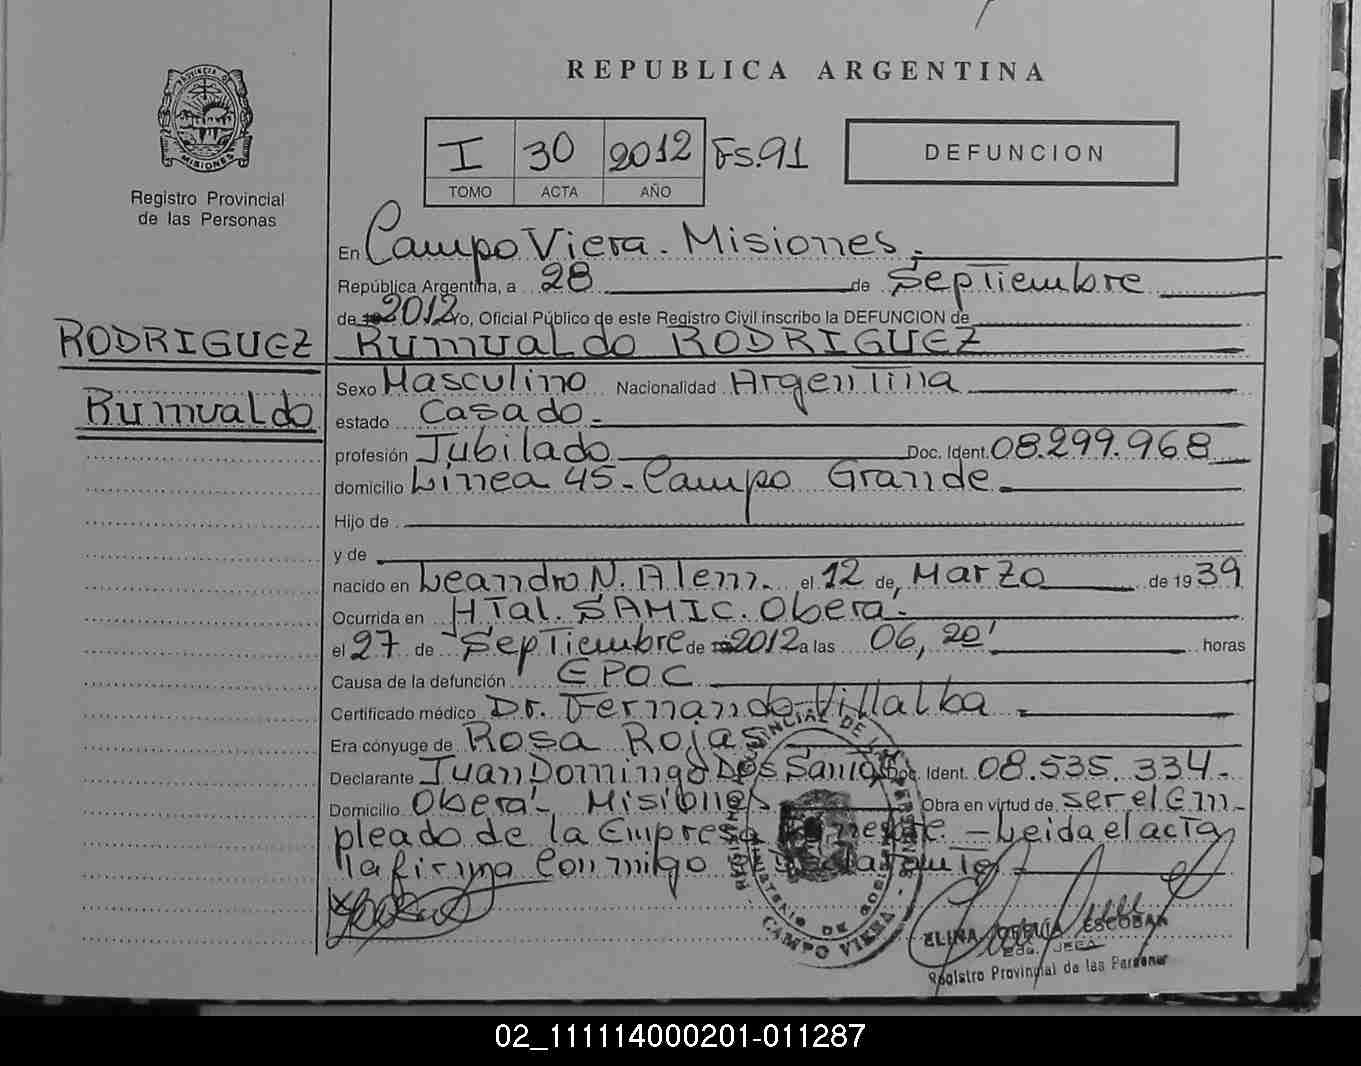 REPUBLICA ARGENTINA
PROVINCIA DE
MISIONES
Registro Provincial
de las Personas
I 30 2012 Fs.91
TOMO ACTA AÑO
DEFUNCION
En Campo Viera. Misiones.
República Argentina, a 28 de Septiembre
de 2012 Yo, Oficial Público de este Registro Civil inscribo la DEFUNCION de
RODRIGUEZ
Rumualdo
Rumualdo RODRIGUEZ
Sexo Masculino Nacionalidad Argentina
estado Casado
profesión Jubilado Doc. Ident. 08.299.968
domicilio Linea 45 - Campo Grande
Hijo de
y de
nacido en Leandro N. Alem. el 12 de Marzo de 1939
Ocurrida en HTal. SAMIC. Obera.
el 27 de Septiembre de 2012 a las 06,20' horas
Causa de la defunción EPOC
Certificado médico Dr. Fernando Villalba
Era cónyuge de Rosa Rojas
Declarante Juan Domingo Dos Santos Doc. Ident. 08.535.334-
Domicilio Oberá - Misiones Obra en virtud de ser el Em-
pleado de la Empresa - Leida el acta
la firma Conmigo
CAMPO VIERA
ELINA ESCOBAR
Registro Provincial de las Personas
02_111114000201-011287